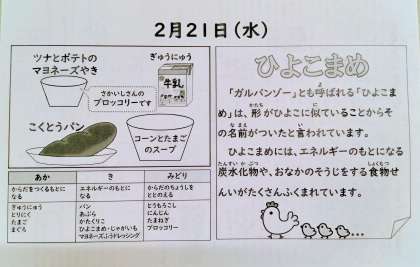 2月21日(水)
ツナとポテトの
マヨネーズやき
ぎゅうにゅう
牛乳
さかいしさんの
ブロッコリーです
こくとうパン
コーンとたまご
のスープ
あか
き
みどり
からだをつくるもとに
なる
エネルギーのもとに
なる
からだのちょうしを
ととのえる
ぎゅうにゅう
とりにく
たまご
まぐろ
パン
あぶら
かたくりこ
ひよこまめ・じゃがいも
マヨネーズふうドレッシング
とうもろこし
にんじん
たまねぎ
ブロッコリー
ひよこまめ
「ガルバンゾー」とも呼ばれる「ひよこま
め」は、形がひよこに似ていることからそ
の名前がついたと言われています。
ひよこまめには、エネルギーのもとになる
炭水化物や、おなかのそうじをする食物せ
んいがたくさんふくまれています。